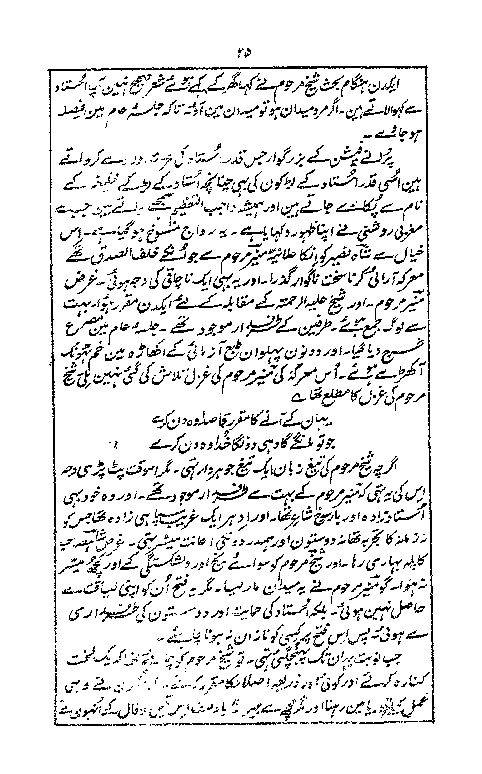 ۲۵
ایکدن ہنگام بحث شیخ مرحوم نے کہا گھر کے کہے ہوئے شعر صحیح نہیں آپ استاد
سے کہوا لاتے ہین۔ اگر مرد میدان ہو تو میدان مین آؤ تاکہ جلسۂ عام مین فیصلہ
ہو جائے۔
پرانے فیشن کے بزرگوار جس قدر استاد کی
ہین اسی قدر استاد کے لڑکون کی بھی چنانچہ استاد کے لڑکے خلیفہ کے
نام سے پکارے جاتے ہین اور ہمیشہ واجب التعظیم سمجھے جاتے ہین جب سے
مغربی روشنی نے اپنا ظہور دکھایا ہے۔ یہ رواج منسوخ ہو گیا ہے۔ اس
خیال سے شاہ نصیر کو انکا علانیہ منیر مرحوم سے جو انکے خلف الصدق تھے
معرکہ آرائی کرنا سخت ناگوار گذرا۔ اور یہ بھی ایک ناچاقی کی وجہ ہوئی۔ غرض
منیر مرحوم۔ اور شیخ علیہ الرحمتہ کے مقابلہ کے لئے ایکدن مقرر ہوا۔ بہت
سے لوگ جمع ہوئے۔ طرفین کے طرفدار موجود تھے۔ جلسۂ عام مین مصرع
طرح دیا گیا۔ اور دونون پہلوان طبع آزمائی کے اکھاڑہ مین خم ٹھونک
آکھڑے ہوئے۔ اُس معرکہ کی منیر مرحوم کی غزل تلاش کی گئی نہین ملی شیخ
مرحوم کی غزل کا مطلع تھا۔
یہان کے آنے کا مقرر قاصد وہ دن کرے
جو تو مانگے گا وہی دونگا خدا وہ دن کرے
اگرچہ شیخ مرحوم کی تیغ زبان ایک تیغ جوہردار تھی۔ مگر اسوقت پٹ پڑی وجہ
اس کی یہ تھی کہ منیر مرحوم کے بہت سے طرفدار موجود تھے۔ اور وہ خود بھی
استاد زادہ اور بارسوخ شاعر تھا۔ اور ادہر ایک غریب سپاہی زادہ تھا جس کو
نہ زمانہ کا تجربہ تھا نہ دوستون اور ہمدردون کی اعانت میسر تھی۔ غرض شاہ نصیر صاحب
کا پلہ بھاری رہا۔ اور شیخ مرحوم کو سوائے رنج اور دلشکستگی کے اور کچھ میسر
نہ ہوا۔ گو منیر مرحوم نے یہ میدان مار لیا۔ مگر یہ فتح اُن کو اپنی لیاقت سے
حاصل نہین ہوئی۔ بلکہ استاد کی حمایت اور دوستون کی طرفداری
سے ہوئی۔ پس اس فتح پر کسی کو نازان نہ ہونا چاہئے۔
جب نوبت یہان تک پہنچ گئی تھی۔ تو شیخ مرحوم کو چاہئے تھا کہ یک لخت
کنارہ کرتے اور کوئی اور ذریعہ اصلاح کا مقرر کرتے۔